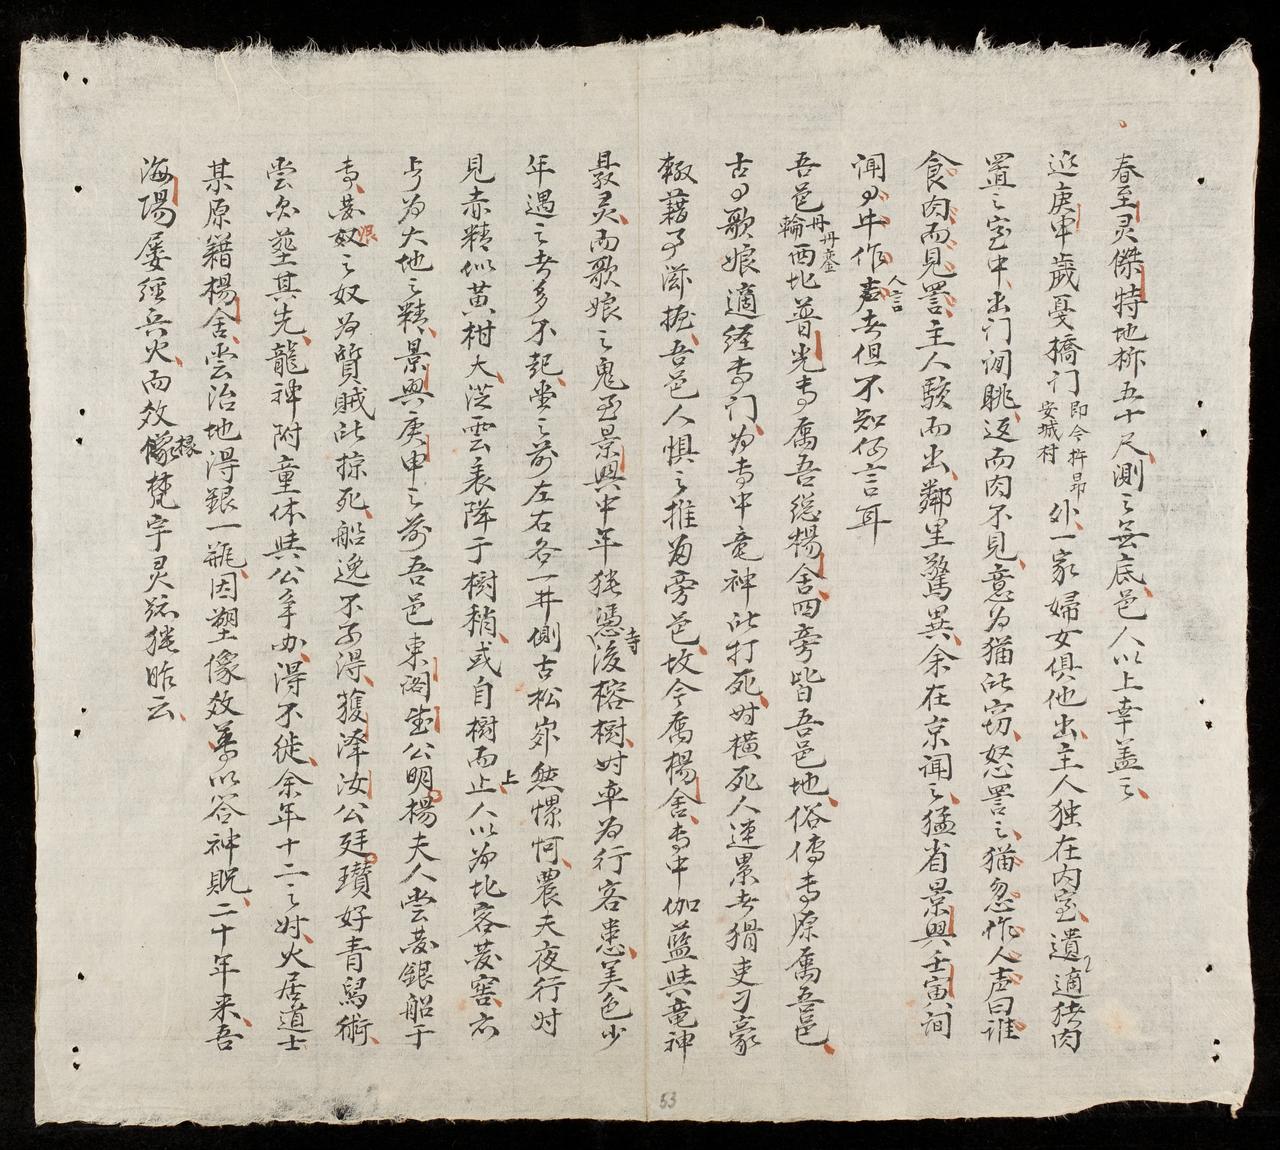 春至灵傑特地柝五十尺測之无底邑人以上幸盖之
近庚申歲憂橋门即今杵昻安城村外一家婦女俱他出主人独在内室遺適猪肉
置之室中出门闲眺返而肉不見意为猫所窃怒詈之猫忽作人声曰誰
食肉而見詈主人駭而出鄰里驚異余在京闻之猛省景興壬寅间
闻牛作人言声者但不知何言耳
吾邑丹輪丹銮西北普光寺属吾总楊舍四旁皆吾邑地俗傳寺原属吾邑
古有歌娘適经寺门为寺中竜神所打死时横死人連累者猾吏刁豪
輒藉事滋擾吾邑人惧之推为旁邑故今属楊舍寺中伽藍與竜神
最灵而歌娘之鬼至景興中年犹憑寺後榕樹时率为行客患美色少
年遇之者多不起堂之前左右各一井側古松峛然懔怐農夫夜行时
見赤精似黄柑大从雲表降于樹稍或自樹而上止人以为北客藏窖亦
以为大地之精景興庚申之前吾邑東阁武公明楊夫人尝藏銀船于
寺藏奴之奴为質賊所掠死船逸不可得獲泽汝公廷瓚好青舄術
尝欲葬其先龍神附童体與公争办得不徙余年十二之时火居道士
某原籍楊舍尝治地得銀一瓶因塑像效募以答神贶二十年来吾
海陽屡經兵火而效像椽梵宇灵跡犹昨云
53